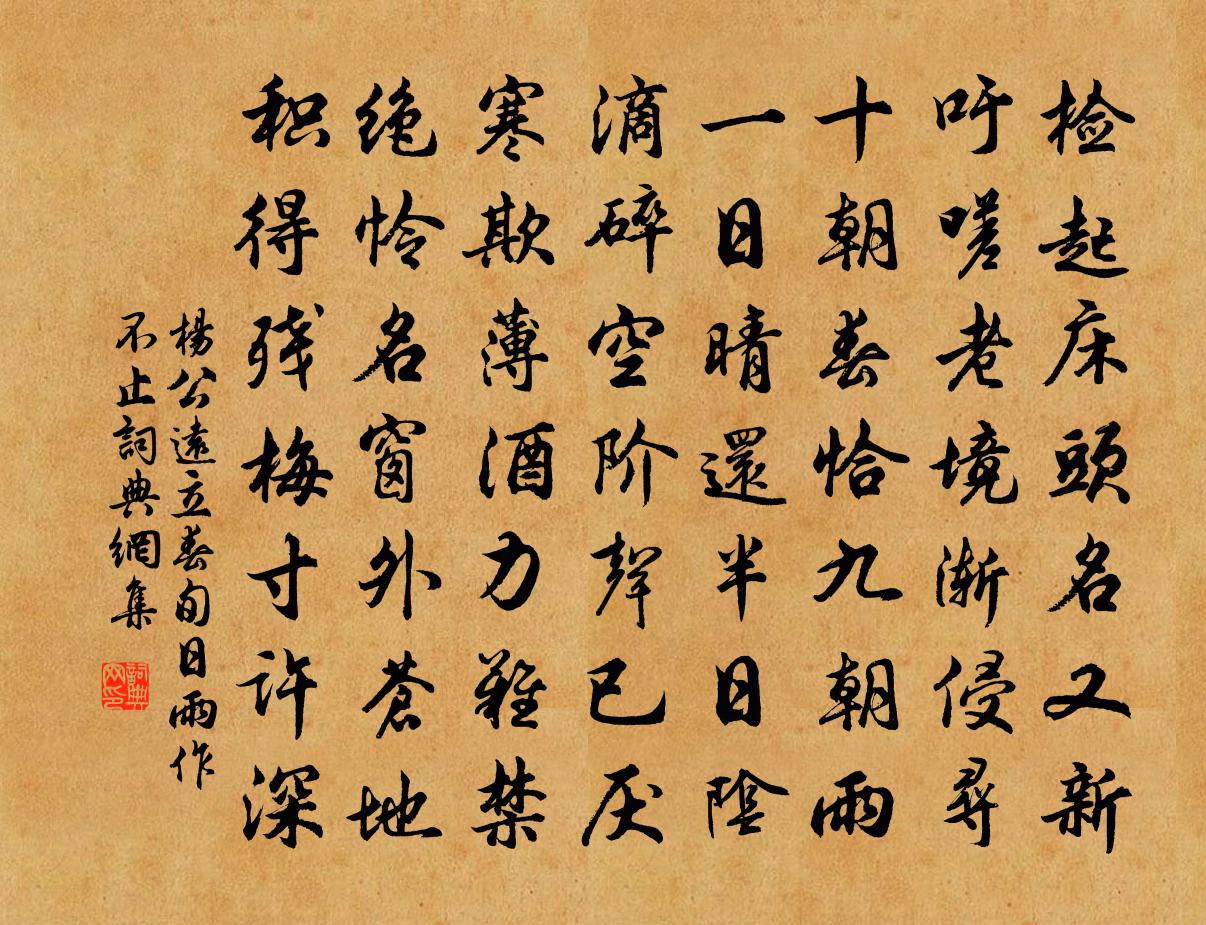 检起床頭名又新
吁嗟老境渐侵尋
十朝春恰九朝雨
一日晴還半日陰
滴碎空阶聲已厌
寒欺薄酒力難禁
绝怜名窗外苍地
积得残梅寸许深
楊公遠立春旬日雨作
不止詞典網集
詞典网印